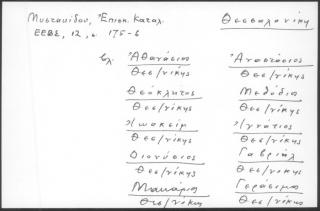 Μυστακίδου, Ἐπισκ. Καταλ.
Θεσσαλονίκη
ΕΕΒΣ, 12, σ. 175-6
βλ. Ἀθανάσιος
Θεσ/νίκης
Ἀναστάσιος
Θεσ/νίκης
Θεόκλητος
Θεσ/νίκης
Μεθόδιος
Θεσ/νίκης
Ἰωακείμ
Θεσ/νίκης
Ἰγνάτιος
Θεσ/νίκης
Διονύσιος
Θεσ/νίκης
Γαβριήλ
Θεσ/νίκης
Μακάριος
Θεσ/νίκης
Γεράσιμος
Θεσ/νίκης